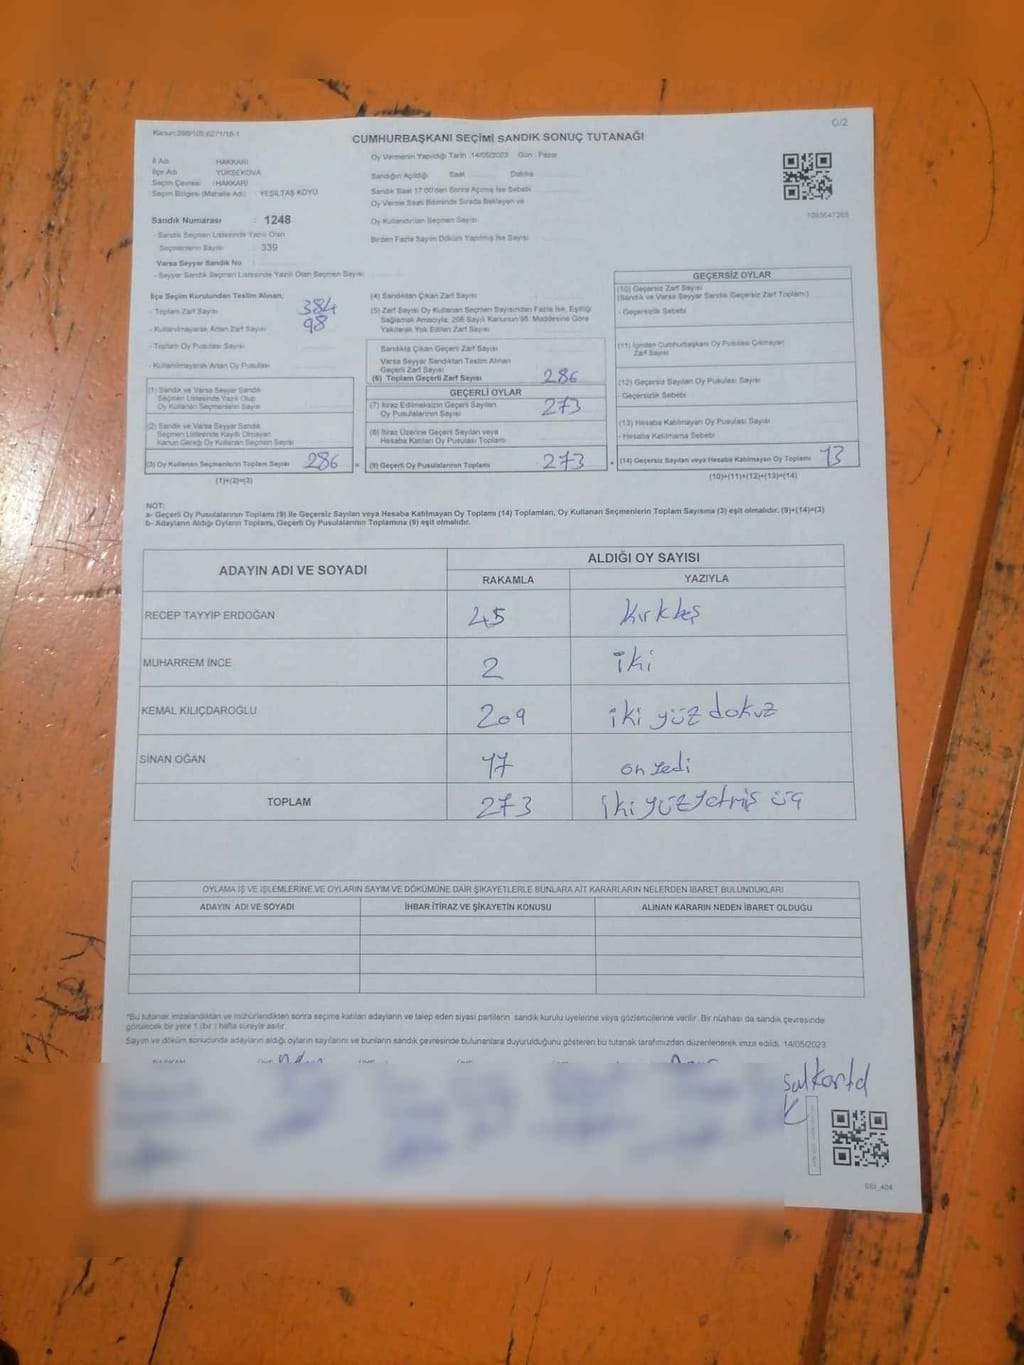 Kanun:298/105;6271/18-1
C/2
CUMHURBAŞKANI SEÇİMİ SANDIK SONUÇ TUTANAĞI
İl Adı HAKKARİ
İlçe Adı YÜKSEKOVA
Seçim Çevresi : HAKKARİ
Seçim Bölgesi (Mahalle Adı) : YEŞİLTAŞ KÖYÜ
Sandık Numarası : 1248
- Sandık Seçmen Listesinde Yazılı Olan
Seçmenlerin Sayısı : 339
Varsa Seyyar Sandık No
- Seyyar Sandık Seçmen Listesinde Yazılı Olan Seçmen Sayısı
Oy Vermenin Yapıldığı Tarih : 14/05/2023 Gün : Pazar
Sandığın Açıldığı Saat Dakika
Sandık Saat 17:00'den Sonra Açılmış İse Sebebi
Oy Verme Saati Bitiminde Sırada Bekleyen ve
Oy Kullandırılan Seçmen Sayısı
Birden Fazla Sayım Döküm Yapılmış İse Sayısı
İlçe Seçim Kurulundan Teslim Alınan;
- Toplam Zarf Sayısı 384
- Kullanılmayarak Artan Zarf Sayısı 98
- Toplam Oy Pusulası Sayısı
- Kullanılmayarak Artan Oy Pusulası
(1) Sandık ve Varsa Seyyar Sandık
Seçmen Listesinde Yazılı Olup
Oy Kullanan Seçmenlerin Sayısı
(2) Sandık ve Varsa Seyyar Sandık
Seçmen Listesinde Kayıtlı Olmayan
Kanun Gereği Oy Kullanan Seçmen Sayısı
(3) Oy Kullanan Seçmenlerin Toplam Sayısı 286
(1)+(2)=(3)
(4) Sandıktan Çıkan Zarf Sayısı
(5) Zarf Sayısı Oy Kullanan Seçmen Sayısından Fazla İse, Eşitliği
Sağlamak Amacıyla; 298 Sayılı Kanunun 98. Maddesine Göre
Yakılarak Yok Edilen Zarf Sayısı
Sandıkta Çıkan Geçerli Zarf Sayısı
Varsa Seyyar Sandıktan Teslim Alınan
Geçerli Zarf Sayısı
(6) Toplam Geçerli Zarf Sayısı 286
GEÇERLİ OYLAR
(7) İtiraz Edilmeksizin Geçerli Sayılan
Oy Pusulalarının Sayısı 273
(8) İtiraz Üzerine Geçerli Sayılan veya
Hesaba Katılan Oy Pusulası Toplamı
= (9) Geçerli Oy Pusulalarının Toplamı 273
GEÇERSİZ OYLAR
(10) Geçersiz Zarf Sayısı
(Sandık ve Varsa Seyyar Sandık Geçersiz Zarf Toplamı)
- Geçersizlik Sebebi
(11) İçinden Cumhurbaşkanı Oy Pusulası Çıkmayan
Zarf Sayısı
(12) Geçersiz Sayılan Oy Pusulası Sayısı
- Geçersizlik Sebebi
(13) Hesaba Katılmayan Oy Pusulası Sayısı
- Hesaba Katılmama Sebebi
+ (14) Geçersiz Sayılan veya Hesaba Katılmayan Oy Toplamı 13
(10)+(11)+(12)+(13)=(14)
NOT:
a- Geçerli Oy Pusulalarının Toplamı (9) ile Geçersiz Sayılan veya Hesaba Katılmayan Oy Toplamı (14) Toplamları, Oy Kullanan Seçmenlerin Toplam Sayısına (3) eşit olmalıdır. (9)+(14)=(3)
b- Adayların Aldığı Oyların Toplamı, Geçerli Oy Pusulalarının Toplamına (9) eşit olmalıdır.
ADAYIN ADI VE SOYADI ALDIĞI OY SAYISI
RAKAMLA YAZIYLA
RECEP TAYYİP ERDOĞAN 45 kırkbeş
MUHARREM İNCE 2 iki
KEMAL KILIÇDAROĞLU 209 iki yüz dokuz
SİNAN OĞAN 17 on yedi
TOPLAM 273 iki yüz yetmiş üç
OYLAMA İŞ VE İŞLEMLERİNE VE OYLARIN SAYIM VE DÖKÜMÜNE DAİR ŞİKAYETLERLE BUNLARA AİT KARARLARIN NELERDEN İBARET BULUNDUKLARI
ADAYIN ADI VE SOYADI İHBAR İTİRAZ VE ŞİKAYETİN KONUSU ALINAN KARARIN NEDEN İBARET OLDUĞU
*Bu tutanak imzalandıktan ve mühürlendikten sonra seçime katılan adayların ve talep eden siyasi partilerin sandık kurulu üyelerine veya gözlemcilerine verilir. Bir nüshası da sandık çevresinde
görülecek bir yere 1 (bir) hafta süreyle asılır.
Sayım ve döküm sonucunda adayların aldığı oyların sayılarını ve bunların sandık çevresinde bulunanlara duyurulduğunu gösteren bu tutanak tarafımızdan düzenlenerek imza edildi. 14/05/2023